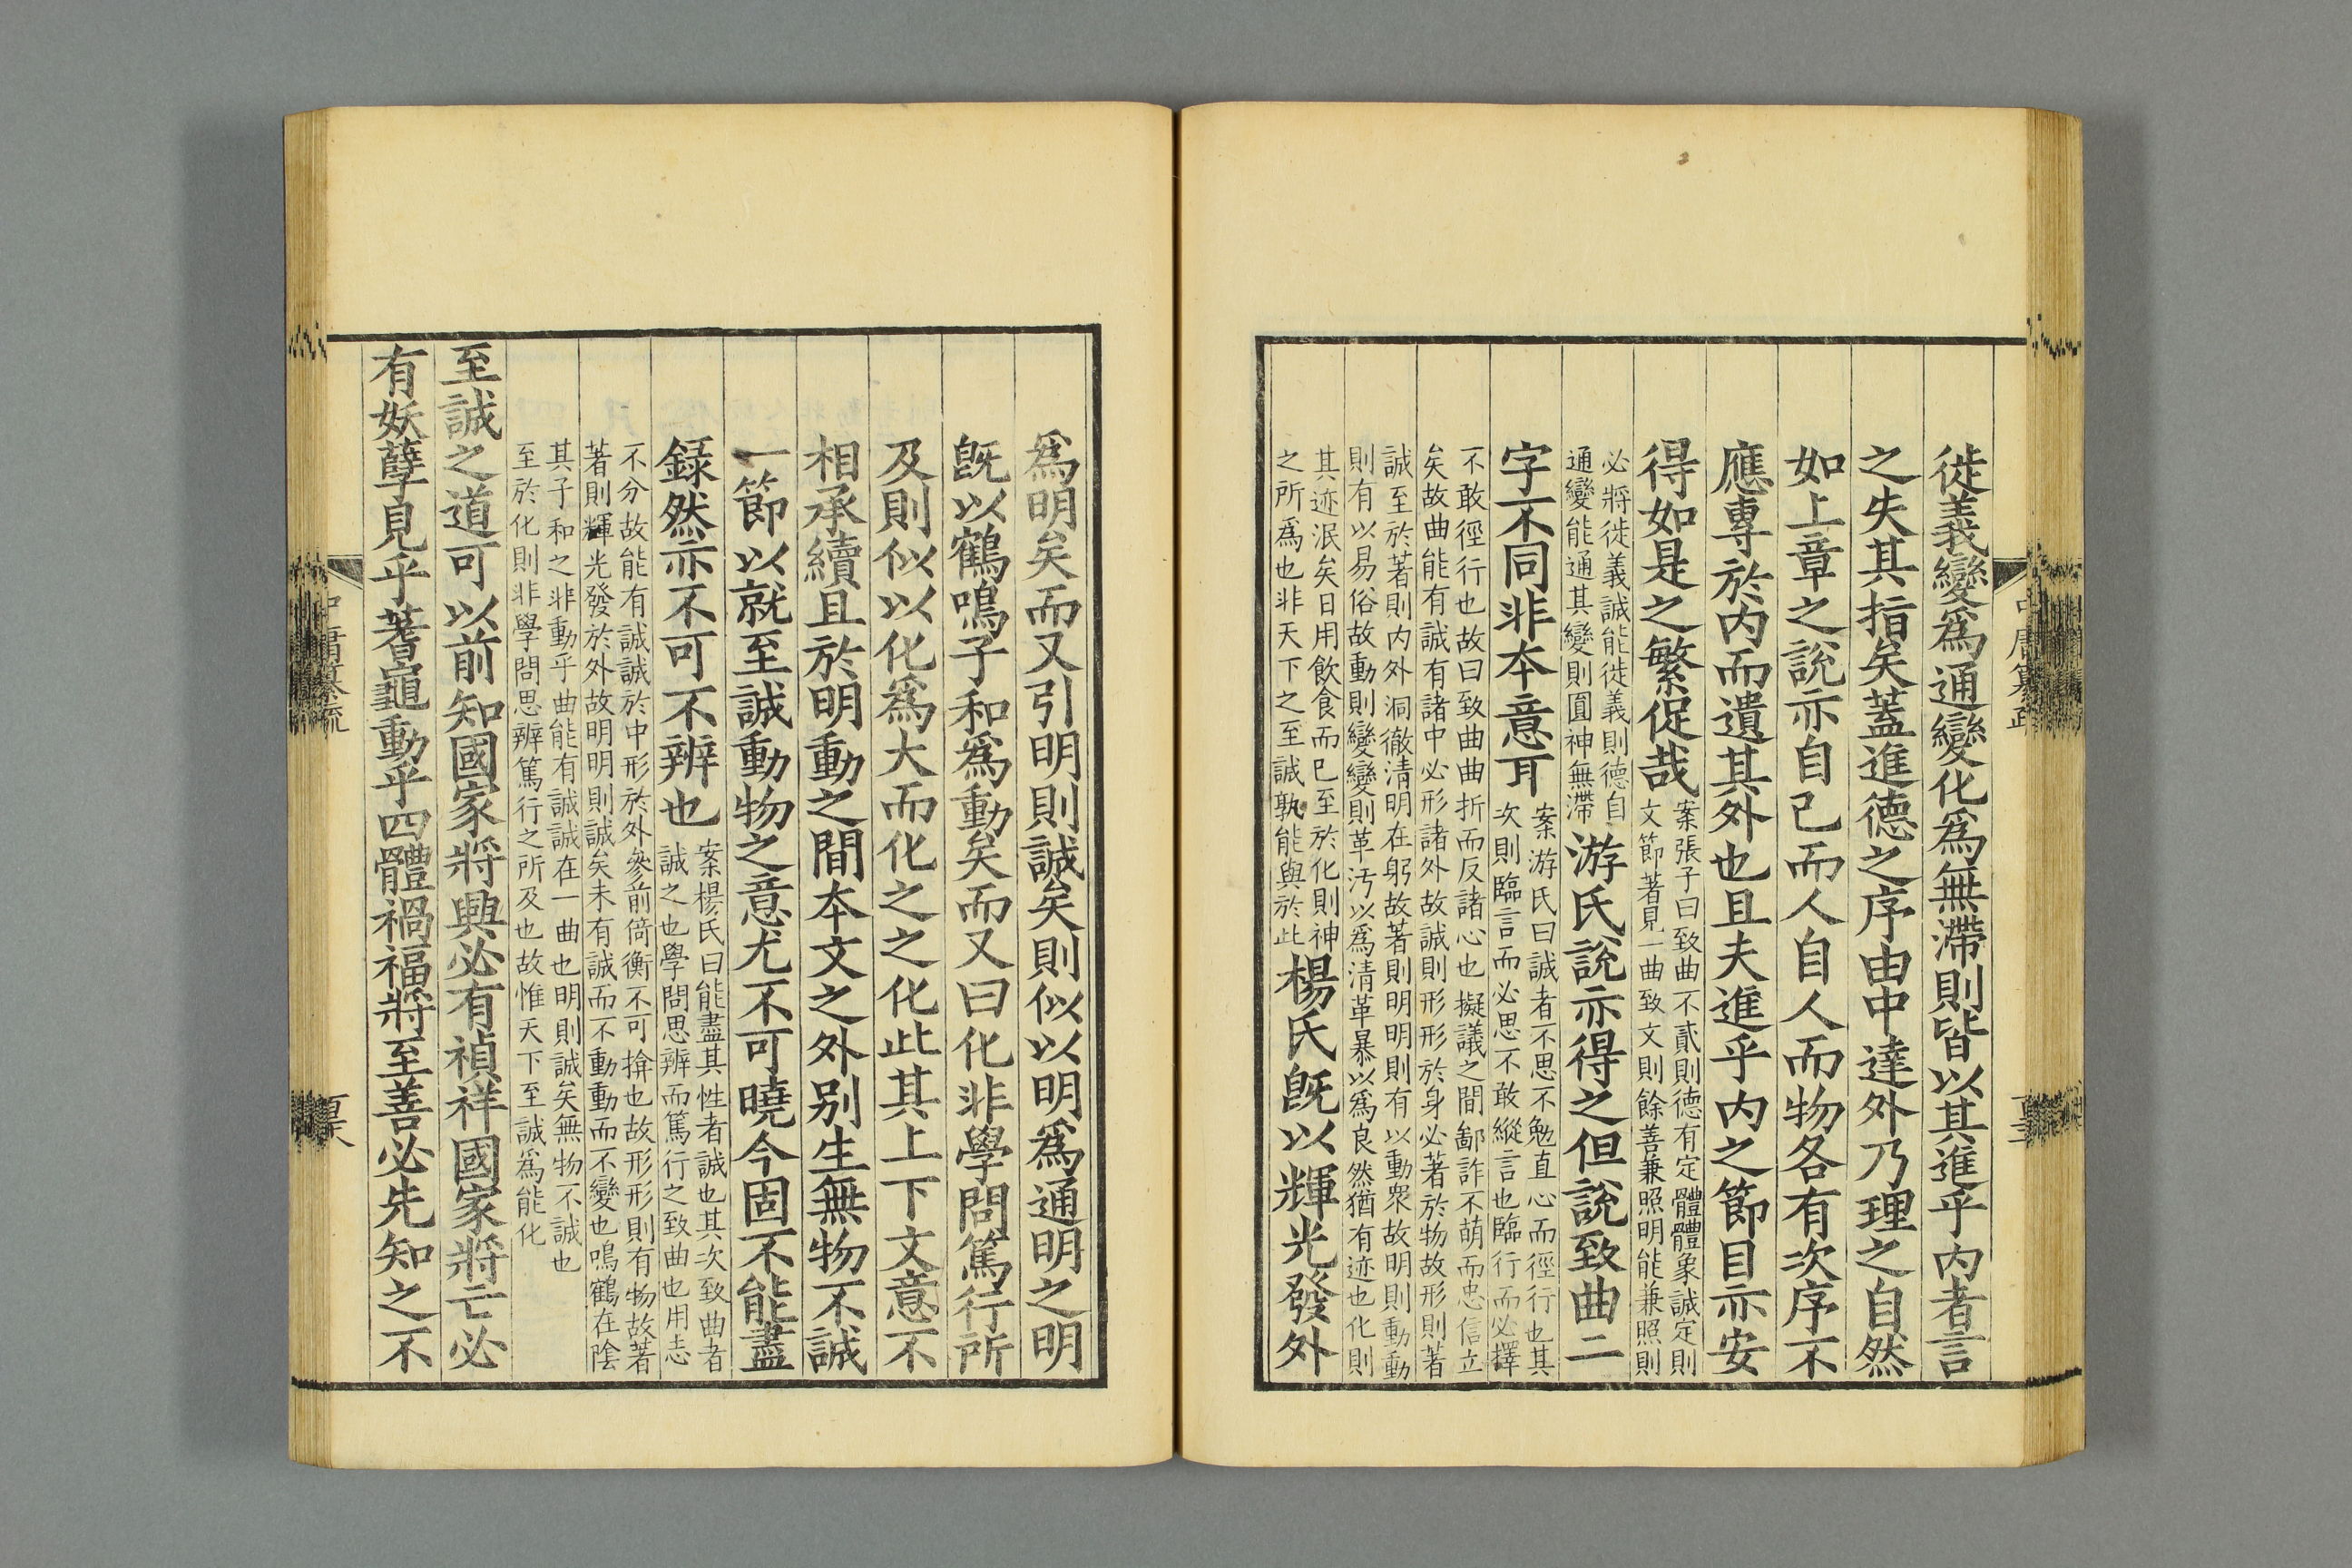 徙義變爲通變化爲無滯則皆以其進乎内者言
之失其指矣蓋進德之序由中達外乃理之自然
如上章之說亦自己而人自人而物各有次序不
應專於内而遺其外也且夫進乎内之節目亦安
得如是之繁促哉
案張子曰致曲不貳則德有定體體象誠定則
文節著見一曲致文則餘善兼照明能兼照則
必將徙義誠能徙義則德自
通變能通其變則圓神無滯
游氏說亦得之但說致曲二
字不同非本意耳
案游氏曰誠者不思不勉直心而徑行也其
次則臨言而必思不敢縱言也臨行而必擇
不敢徑行也故曰致曲曲折而反諸心也擬議之間鄙詐不萌而忠信立
矣故曲能有誠有諸中必形諸外故誠則形形於身必著於物故形則著
誠至於著則内外洞徹清明在躬故著則明明則有以動衆故明則動動
則有以易俗故動則變變則革汚以爲清革暴以爲良然猶有迹也化則
其迹泯矣日用飲食而已至於化則神
之所爲也非天下之至誠孰能與於此
楊氏旣以輝光發外
爲明矣而又引明則誠矣則似以明爲通明之明
旣以鶴鳴子和爲動矣而又曰化非學問篤行所
及則似以化爲大而化之之化此其上下文意不
相承續且於明動之間本文之外别生無物不誠
一節以就至誠動物之意尤不可曉今固不能盡
録然亦不可不辨也
案楊氏曰能盡其性者誠也其次致曲者
誠之也學問思辨而篤行之致曲也用志
不分故能有誠誠於中形於外參前倚衡不可揜也故形形則有物故著
著則輝光發於外故明明則誠矣未有誠而不動動而不變也鳴鶴在陰
其子和之非動乎曲能有誠誠在一曲也明則誠矣無物不誠也
至於化則非學問思辨篤行之所及也故惟天下至誠爲能化
至誠之道可以前知國家將興必有禎祥國家將亡必
有妖孽見乎蓍龜動乎四體禍福將至善必先知之不